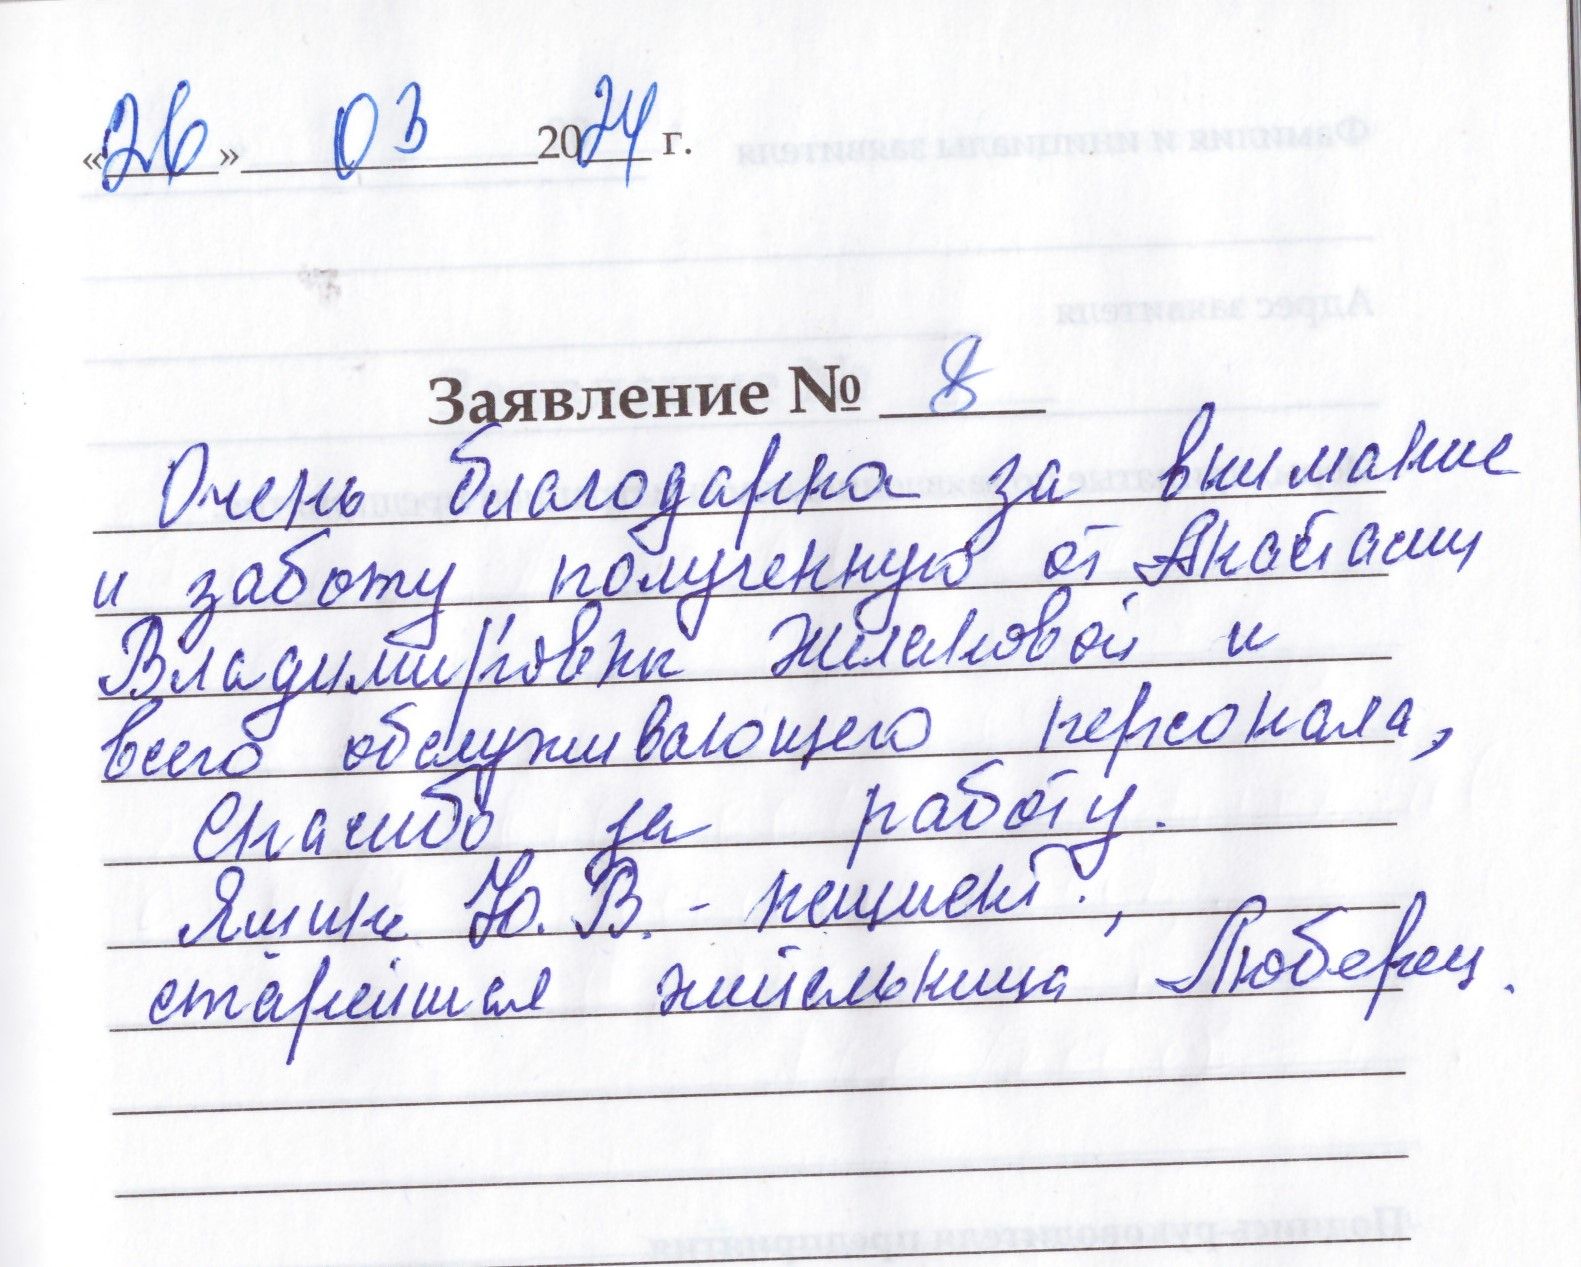 «26» 03 2024 г.
Заявление № 8
Очень благодарна за внимание
и заботу полученную от Анастасии
Владимировны Жиляковой и
всего обслуживающего персонала,
Спасибо за работу.
Ю. В. - пациент.,
старейшая жительница Люберец.